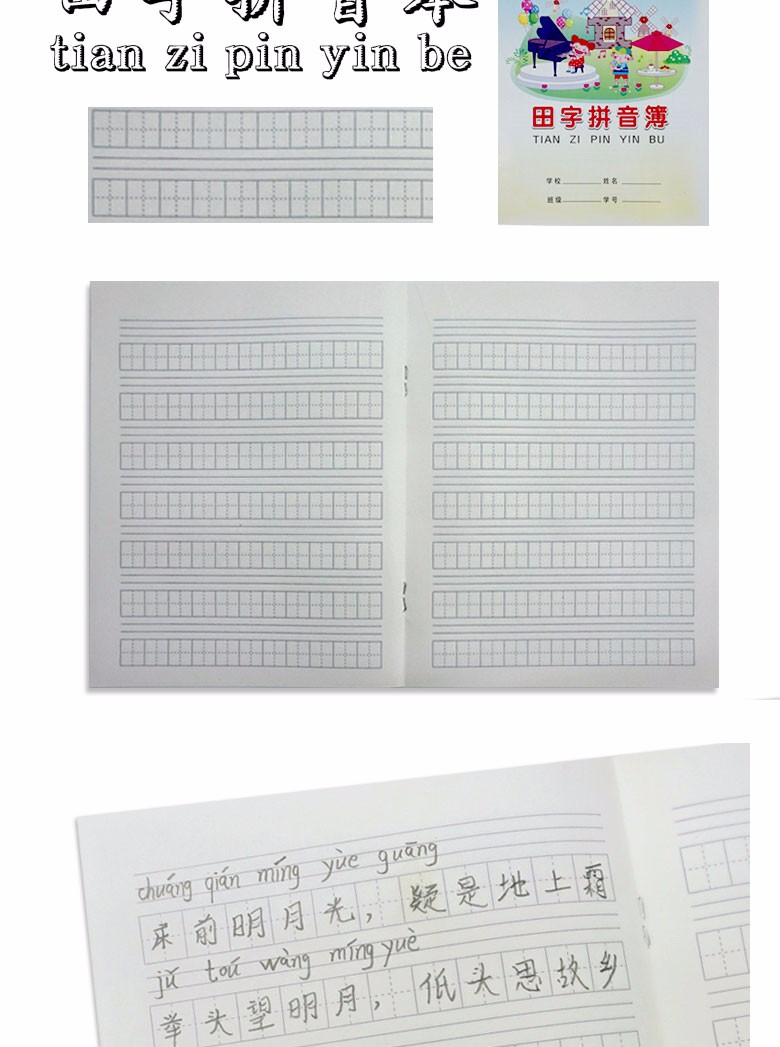 田字拼音本
tian zi pin yin be
田字拼音簿
TIAN ZI PIN YIN BU
学校 姓名
班级 学号
chuáng qián míng yùe guāng
床前明月光，疑是地上霜
jǔ toú wàng míng yuè
举头望明月，低头思故乡